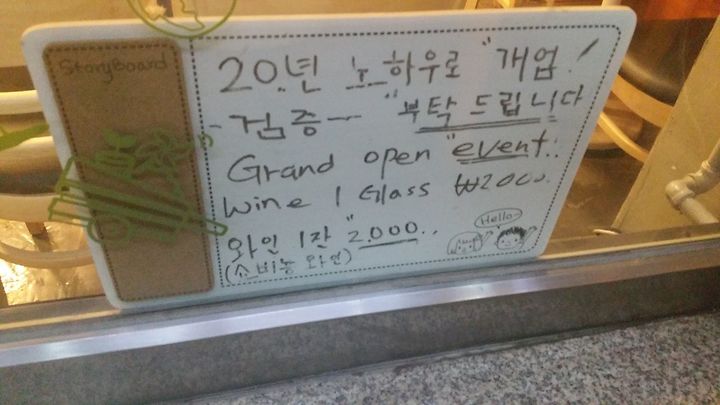 StoryBoard
20년 노하우로 "개업!
- 검증 - "부탁 드립니다
Grand open "event..
Wine 1 Glass ₩2000.
와인 1잔 "2.000..
(쇼비뇽 와인)
Hello~